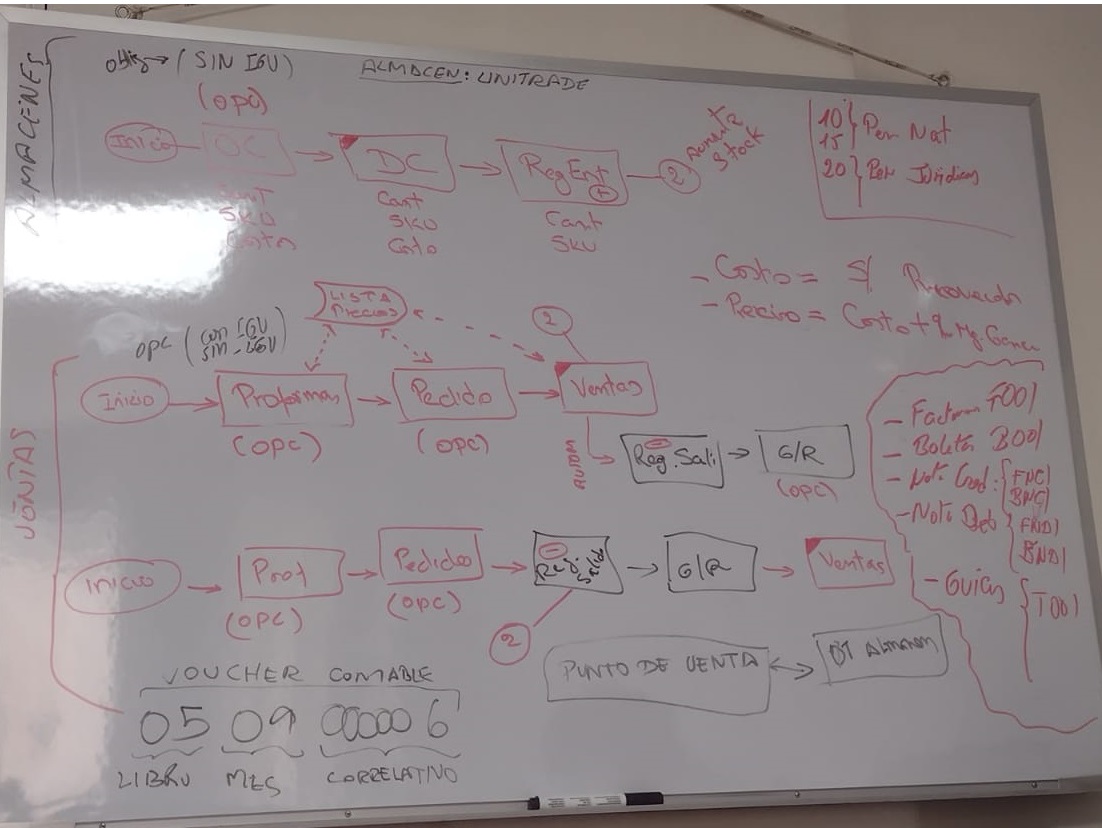 ALMACENES
oblig → (SIN IGV)
ALMACEN: UNITRADE
(OPC)
Inicio
OC
DC
Reg Ent
+
2
Aumenta
Stock
Cant
SKU
Costo
Cant
SKU
Costo
Cant
SKU
10 } Per Nat
15
20 } Per Jurídicas
- Costo = S/
- Precio = Costo + % Mg. Gana
LISTA
Precios
OPC (con IGV
sin - IGV)
2
VENTAS
Inicio
Proformas
Pedido
Ventas
(OPC)
(OPC)
Reg. Sali
G/R
(OPC)
- Factura F001
- Boleta B001
- Nota Cred. { FNC1
BNC1
- Nota Deb { FND1
BND1
- Guias { T001
INICIO
Prof
Pedido
Reg.
Salida
G/R
Ventas
(OPC)
(OPC)
2
PUNTO DE VENTA
OT Almacen
VOUCHER CONTABLE
05 09 00000 6
LIBRO MES CORRELATIVO